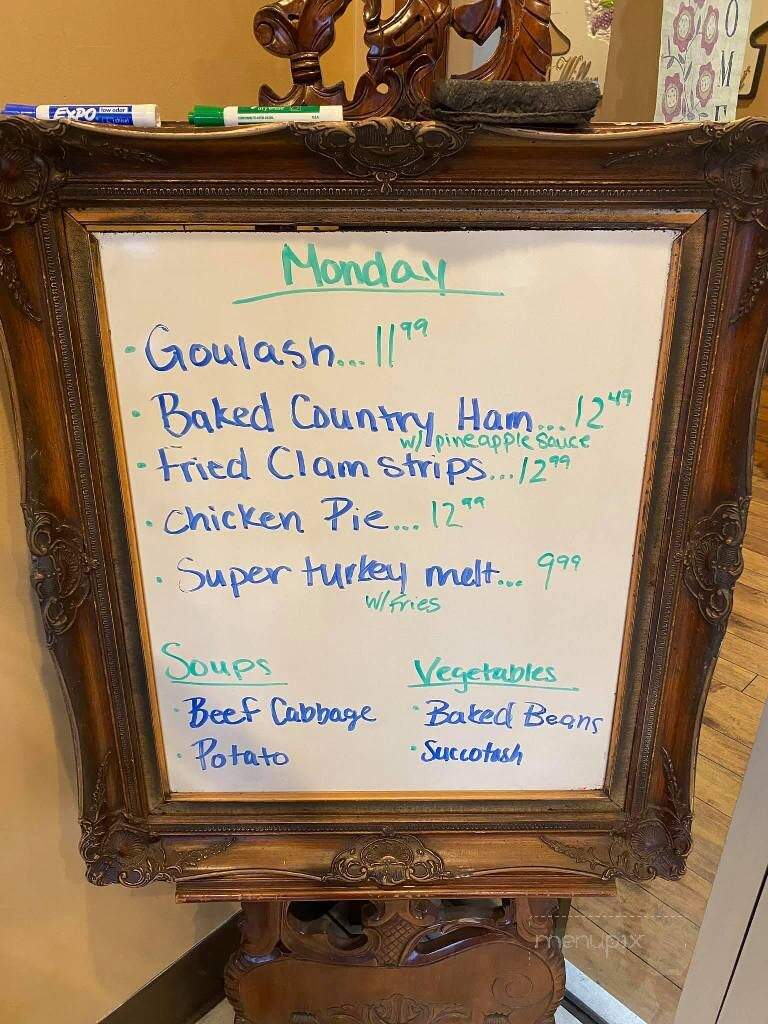 EXPO low odor
OME
Monday
· Goulash... 11 99
· Baked Country Ham... 12 49
w/ pineapple sauce
· Fried Clam strips... 12 99
· Chicken Pie... 12 99
· Super turkey melt... 9 99
w/fries
Soups
Vegetables
· Beef Cabbage
· Baked Beans
· Potato
· Succotash
menupix